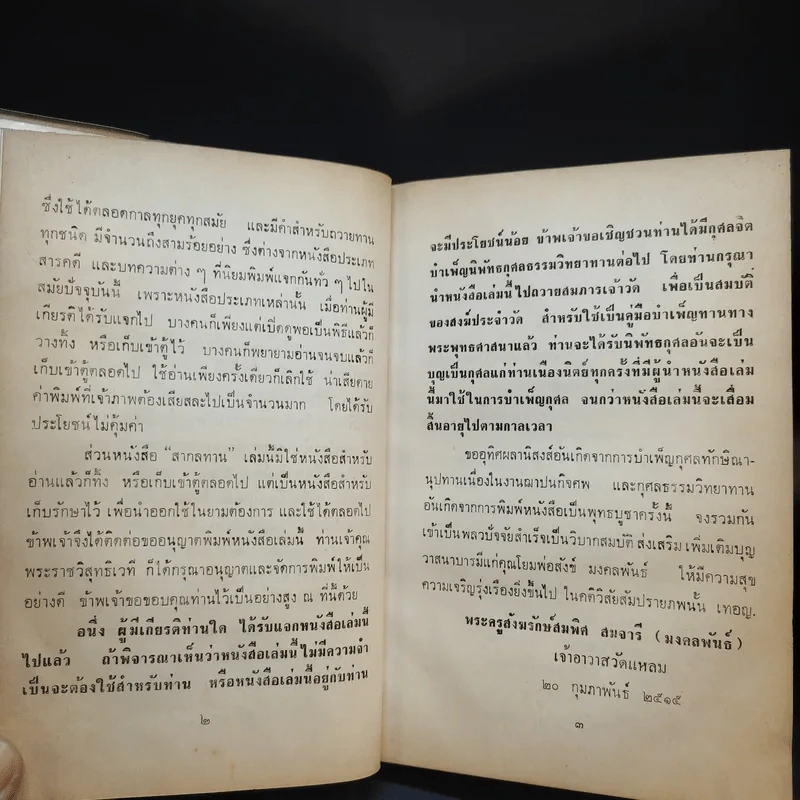 ซึ่งใช้ได้ตลอดกาลทุกยุคทุกสมัย และมีคำสำหรับถวายทาน
ทุกชนิด มีจำนวนถึงสามร้อยอย่าง ซึ่งต่างจากหนังสือประเภท
สารคดี และบทความต่าง ๆ ที่นิยมพิมพ์แจกกันทั่ว ๆ ไปใน
สมัยปัจจุบันนี้ เพราะหนังสือประเภทเหล่านั้น เมื่อท่านผู้มี
เกียรติได้รับแจกไป บางคนก็เพียงแต่เปิดดูพอเป็นพิธีแล้วก็
วางทิ้ง หรือเก็บเข้าตู้ไว้ บางคนก็พยายามอ่านจนจบแล้วก็
เก็บเข้าตู้ตลอดไป ใช้อ่านเพียงครั้งเดียวก็เลิกใช้ น่าเสียดาย
ค่าพิมพ์ที่เจ้าภาพต้องเสียสละไปเป็นจำนวนมาก โดยได้รับ
ประโยชน์ไม่คุ้มค่า
ส่วนหนังสือ “สากลทาน” เล่มนี้มิใช่หนังสือสำหรับ
อ่านแล้วก็ทิ้ง หรือเก็บเข้าตู้ตลอดไป แต่เป็นหนังสือสำหรับ
เก็บรักษาไว้ เพื่อนำออกใช้ในยามต้องการ และใช้ได้ตลอดไป
ข้าพเจ้าจึงได้ติดต่อขออนุญาตพิมพ์หนังสือเล่มนี้ ท่านเจ้าคุณ
พระราชวิสุทธิเวที ก็ได้กรุณาอนุญาตและจัดการพิมพ์ให้เป็น
อย่างดี ข้าพเจ้าขอขอบคุณท่านไว้เป็นอย่างสูง ณ ที่นี้ด้วย
อนึ่ง ผู้มีเกียรติท่านใด ได้รับแจกหนังสือเล่มนี้
ไปแล้ว ถ้าพิจารณาเห็นว่าหนังสือเล่มนี้ไม่มีความจำ
เป็นจะต้องใช้สำหรับท่าน หรือหนังสือเล่มนี้อยู่กับท่าน
๒
จะมีประโยชน์น้อย ข้าพเจ้าขอเชิญชวนท่านได้มีกุศลจิต
บำเพ็ญนิพัทธกุศลธรรมวิทยาทานต่อไป โดยท่านกรุณา
นำหนังสือเล่มนี้ไปถวายสมภารเจ้าวัด เพื่อเป็นสมบัติ
ของสงฆ์ประจำวัด สำหรับใช้เป็นคู่มือบำเพ็ญทานทาง
พระพุทธศาสนาแล้ว ท่านจะได้รับนิพัทธกุศลอันจะเป็น
บุญเป็นกุศลแก่ท่านเนืองนิตย์ทุกครั้งที่มีผู้นำหนังสือเล่ม
นี้มาใช้ในการบำเพ็ญกุศล จนกว่าหนังสือเล่มนี้จะเสื่อม
สิ้นอายุไปตามกาลเวลา
ขออุทิศผลานิสงส์อันเกิดจากการบำเพ็ญกุศลทักษิณา-
นุปทานเนื่องในงานฌาปนกิจศพ และกุศลธรรมวิทยาทาน
อันเกิดจากการพิมพ์หนังสือเป็นพุทธบูชาครั้งนี้ จงรวมกัน
เข้าเป็นพลวปัจจัยสำเร็จเป็นวิบากสมบัติ ส่งเสริม เพิ่มเติมบุญ
วาสนาบารมีแก่คุณโยมพ่อสังข์ มงคลพันธ์ ให้มีความสุข
ความเจริญรุ่งเรืองยิ่งขึ้นไป ในคติวิสัยสัมปรายภพนั้น เทอญ.
พระครูสังฆรักษ์สมพิศ สมจารี (มงคลพันธ์)
เจ้าอาวาสวัดแหลม
๒๐ กุมภาพันธ์ ๒๕๑๕
๓